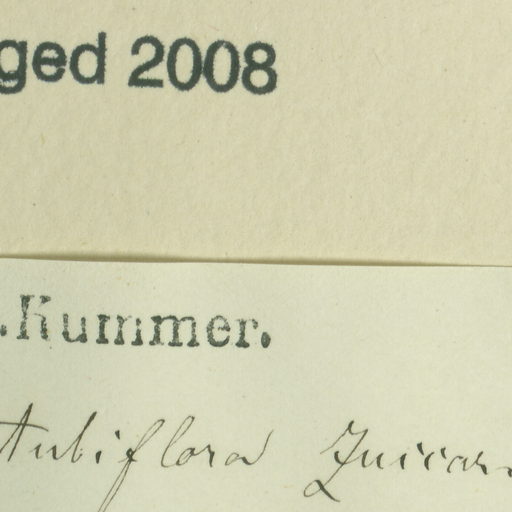 ged 2008
.Kummer.
tubiflora Zuccar